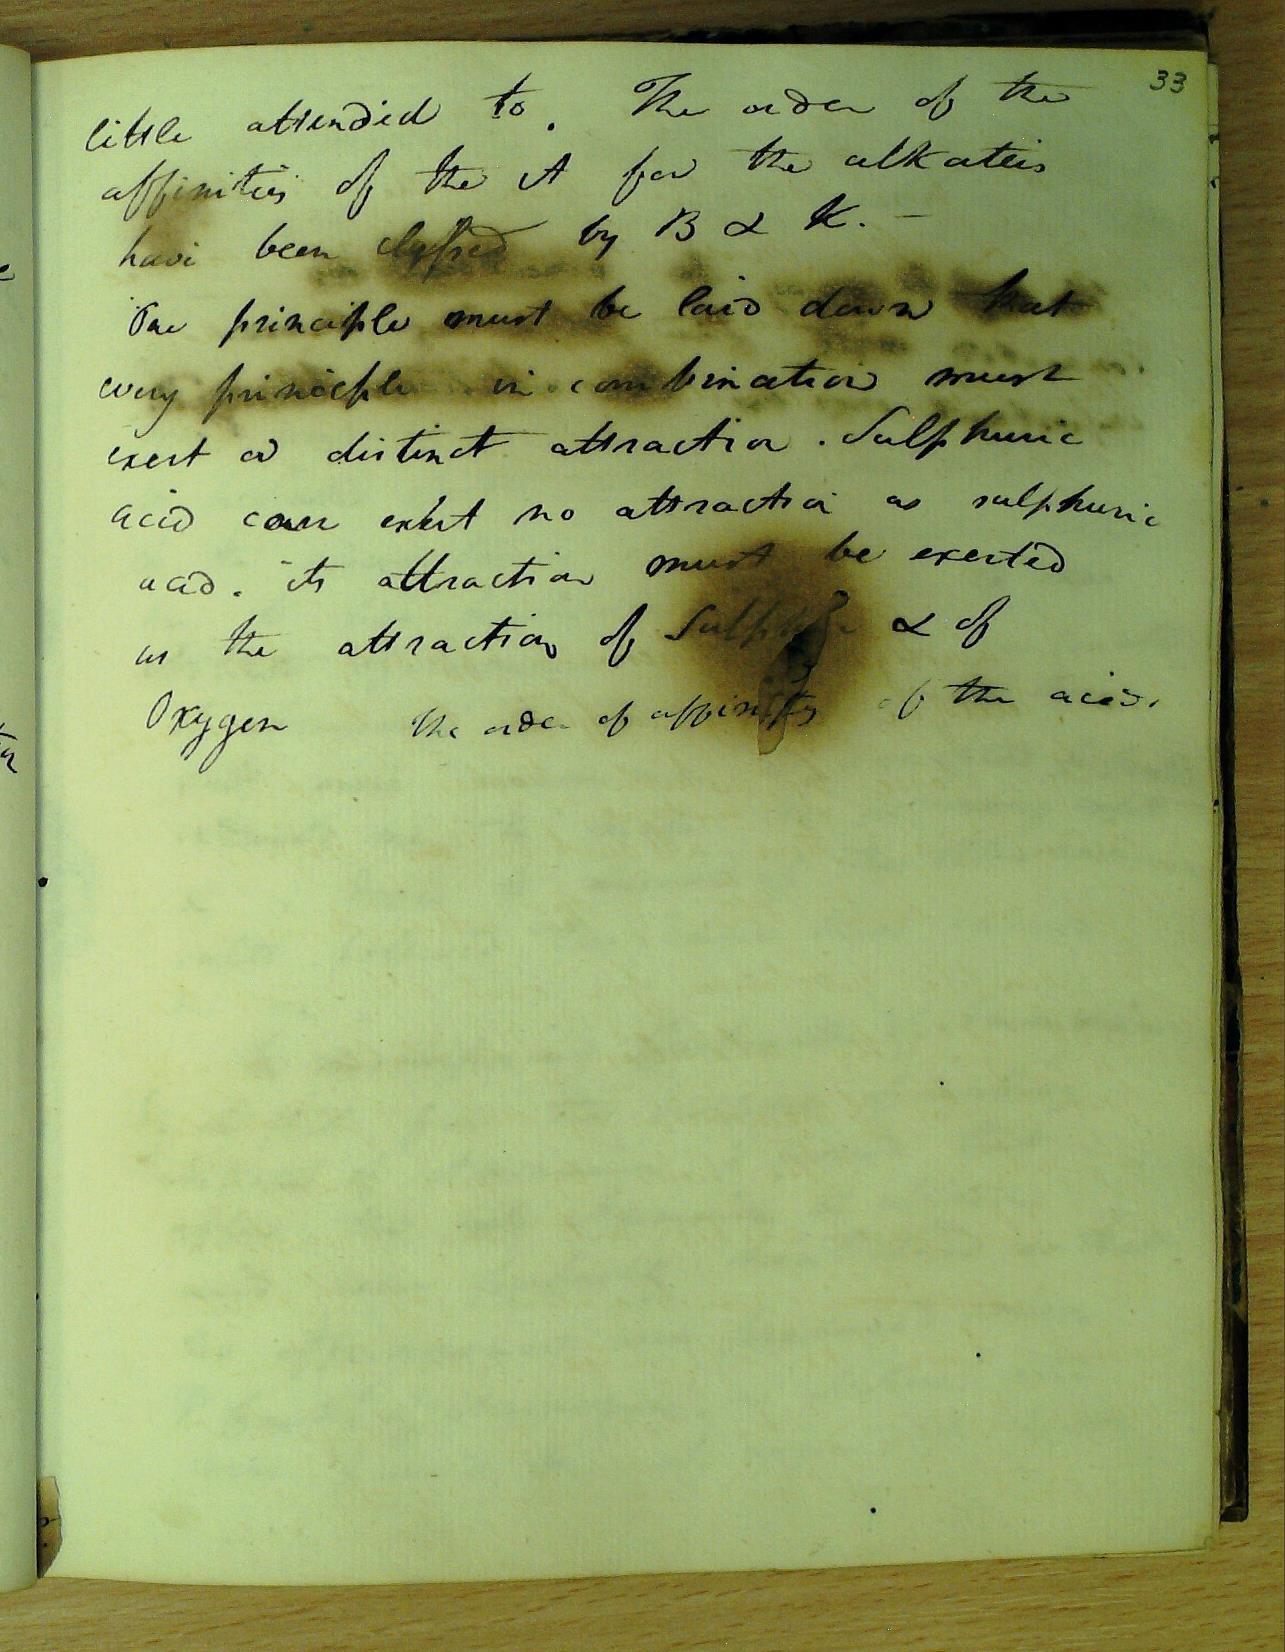 33
little attended to. The order of the
affinities of the A for the alkalies
have been classed by B & K. -
One principle must be laid down that
every principle in combination must
exert a distinct attraction. Sulphuric
acid can exert no attraction as sulphuric
acid. its attraction must be exerted
as the attraction of Sulphur & of
Oxygen The order of affinity of the acids.